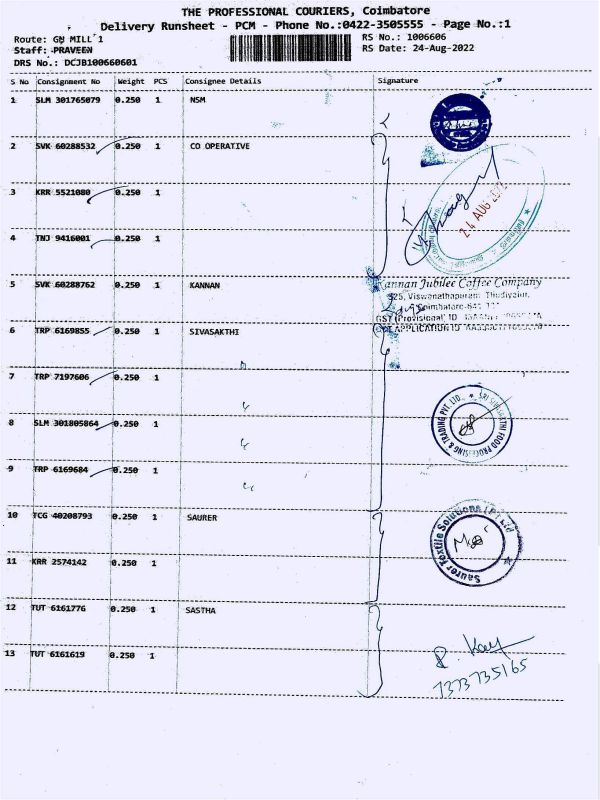 THE PROFESSIONAL COURIERS, Coimbatore
Delivery Runsheet - PCM - Phone No.:0422-3505555 - Page No.:1
Route: GN MILL 1
RS No.: 1006606
Staff: PRAVEEN
RS Date: 24-Aug-2022
DRS No.: DCJB100660601
S No Consignment No Weight PCS Consignee Details Signature
1 SLM 301765079 0.250 1 NSM
2 SVK 60288532 0.250 1 CO OPERATIVE
3 KRR 5521080 0.250 1
24 AUG 2022
4 TNJ 9416001 0.250 1
5 SVK 60288762 0.250 1 KANNAN
Kannan Jubilee Coffee Company
525, Viswanathapuram, Thudiyalur,
Coimbatore-641
GST (Provisional) ID
GST APPLICATION ID
6 TRP 6169855 0.250 1 SIVASAKTHI
7 TRP 7197606 0.250 1
8 SLM 301805864 0.250 1
SRI SIVASAKTHI FOOD PROCESSING & TRADING PVT. LTD.,
9 TRP 6169684 0.250 1
10 TCG 40208793 0.250 1 SAURER
Saurer Textile Solutions (P) Ltd
11 KRR 2574142 0.250 1
12 TUT 6161776 0.250 1 SASTHA
13 TUT 6161619 0.250 1
7373735165